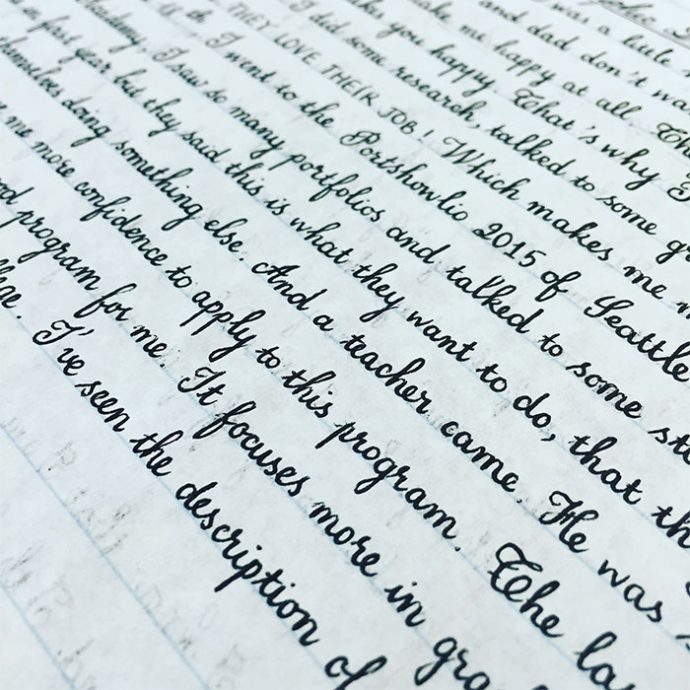 was a little
and dad don't wa
me happy at all The
you happy That's why I
I did some research, talked to some gr
THEY LOVE THEIR JOB! Which makes me m
I went to the Portshowlio 2015 of Seattle
I saw so many portfolios and talked to some stu
first year but they said this is what they want to do, that th
themselves doing something else. And a teacher came. He was s
me more confidence to apply to this program. The la
program for me. It focuses more in gra
I've seen the description of